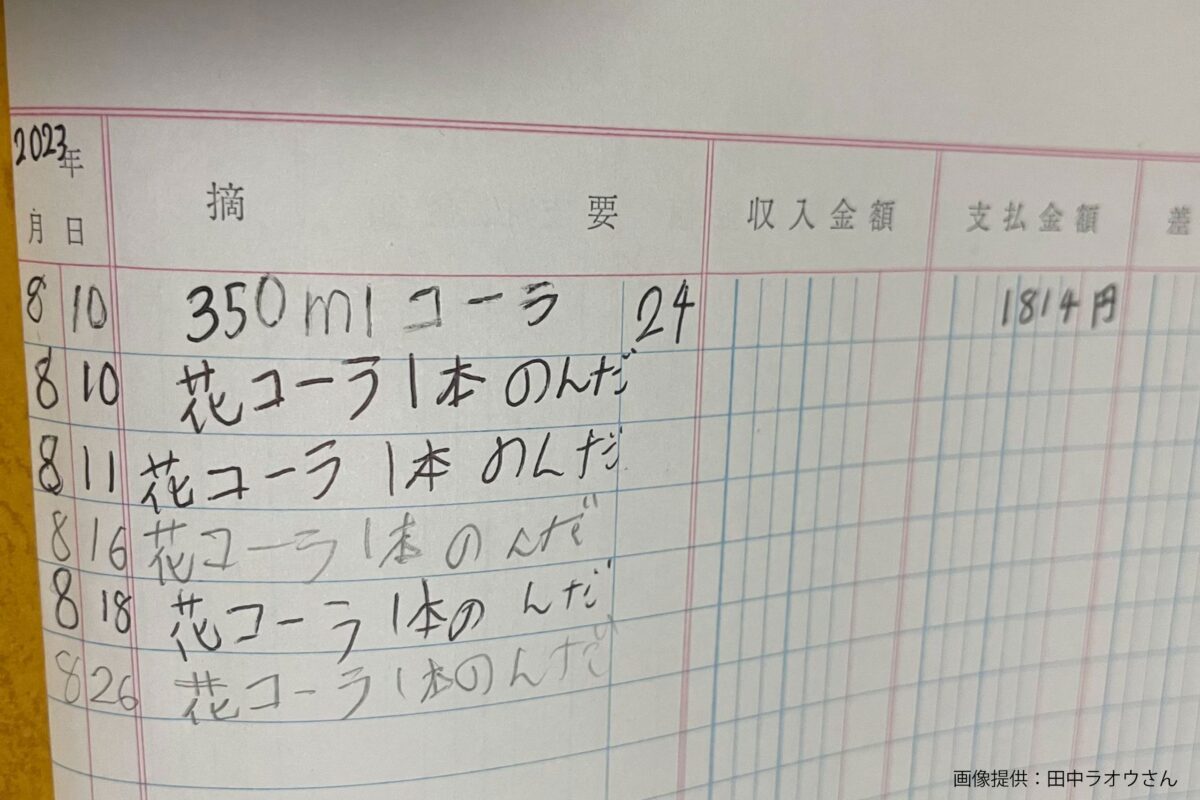 2023年
月 日 摘 要 収入金額 支払金額 差
8 10 350ml コーラ 24 1814円
8 10 花コーラ1本のんだ
8 11 花コーラ1本のんだ
8 16 花コーラ1本のんだ
8 18 花コーラ1本のんだ
8 26 花コーラ1本のんだ
画像提供：田中ラオウさん